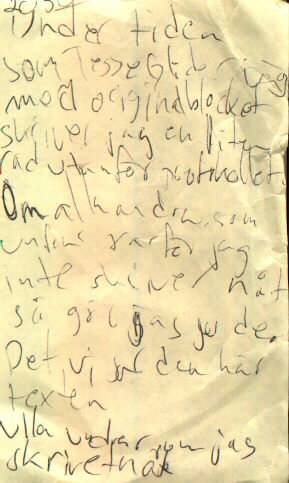 Under tiden
som
med originalblocket
skriver jag en liten
rad utanför protokollet.
Om alla andra som
undrar varför jag
inte skriver nåt
så gör jag ju de.
Det vi ju den här
texten
Ulla undrar om jag
skrivet nåt